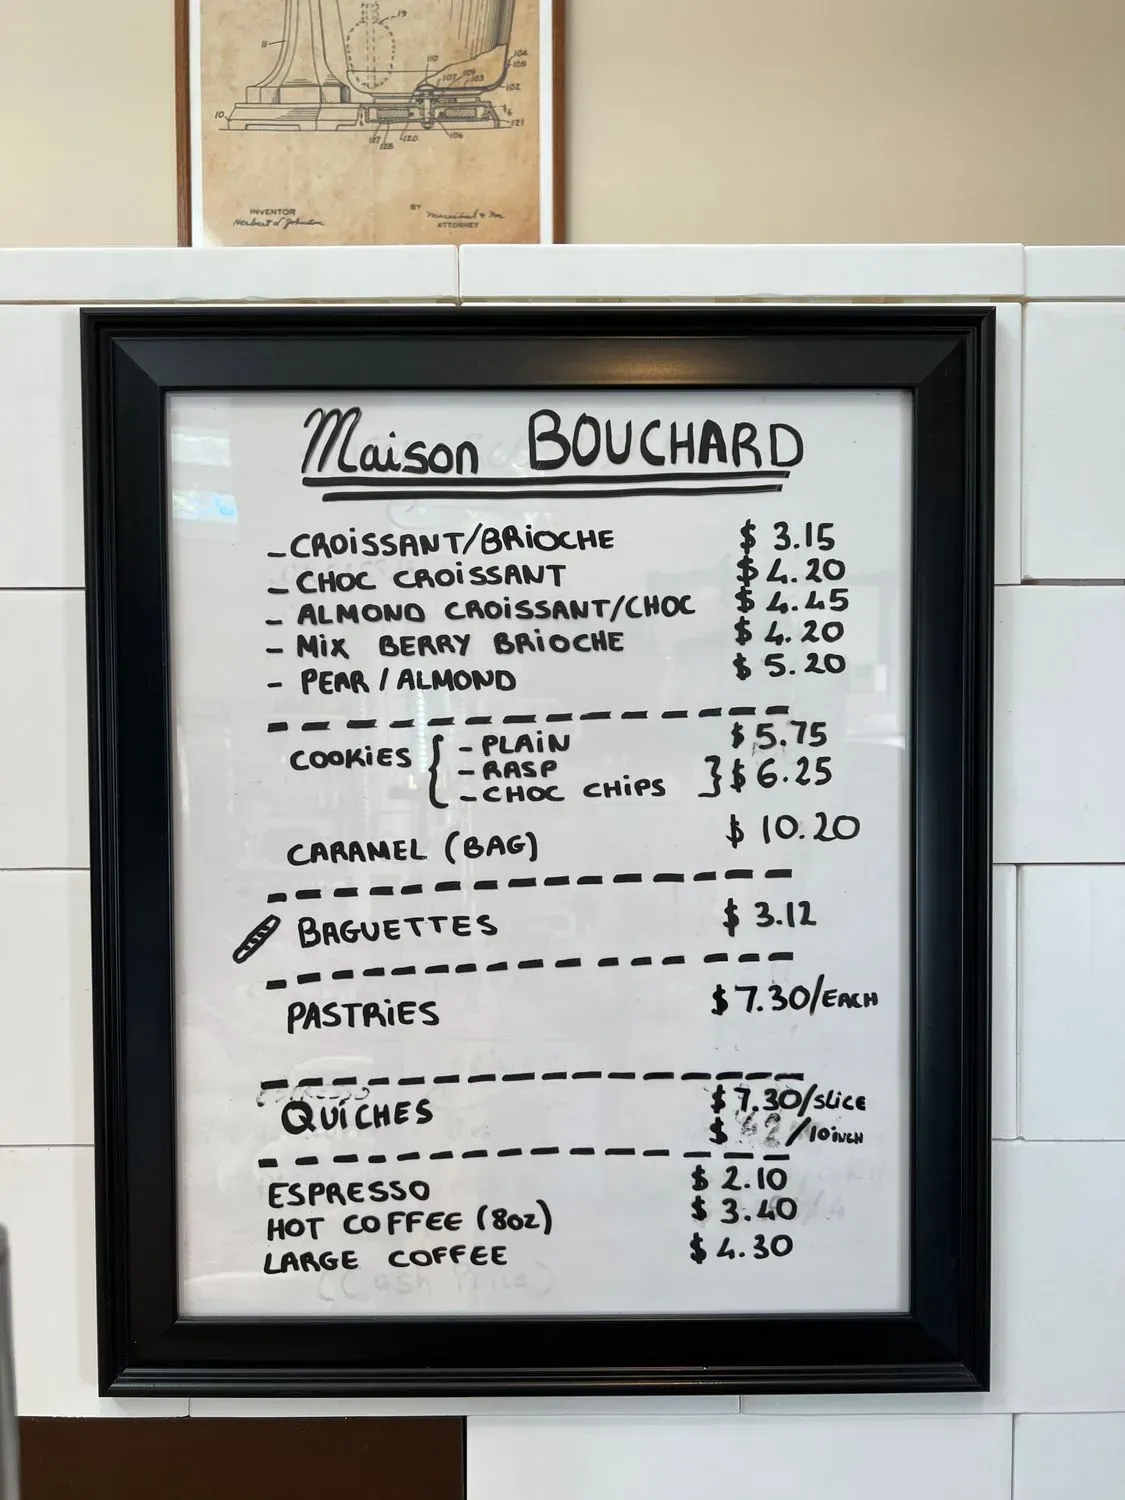 19
11
110
104
105
107
109
103
102
10
6
121
127
128
120
106
INVENTOR
Herbert L Johnston
BY
ATTORNEY
Maison BOUCHARD
- CROISSANT/BRIOCHE $ 3.15
- CHOC CROISSANT $ 4.20
- ALMOND CROISSANT/CHOC $ 4.45
- MIX BERRY BRIOCHE $ 4.20
- PEAR / ALMOND $ 5.20
COOKIES { - PLAIN $ 5.75
- RASP } $ 6.25
- CHOC CHIPS
CARAMEL (BAG) $ 10.20
BAGUETTES $ 3.12
PASTRIES $ 7.30/EACH
QUICHES $ 7.30/SLICE
$ /10 INCH
ESPRESSO $ 2.10
HOT COFFEE (8oz) $ 3.40
LARGE COFFEE $ 4.30
(Cash Price)